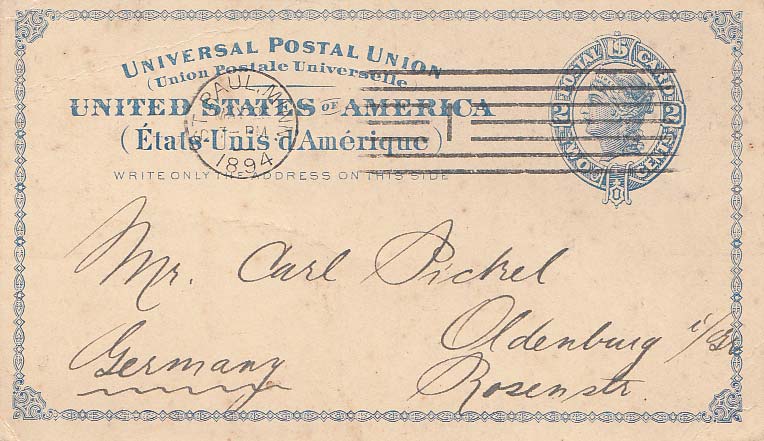 UNIVERSAL POSTAL UNION
(Union Postale Universelle)
UNITED STATES OF AMERICA
(États-Unis d'Amérique)
WRITE ONLY THE ADDRESS ON THIS SIDE
POSTAL CARD
U.S.
2
2
ST. PAUL, MINN.
PM
1894
1
Mr. Carl Pickel
Oldenburg i/Gr.
Germany
Rosenstr.